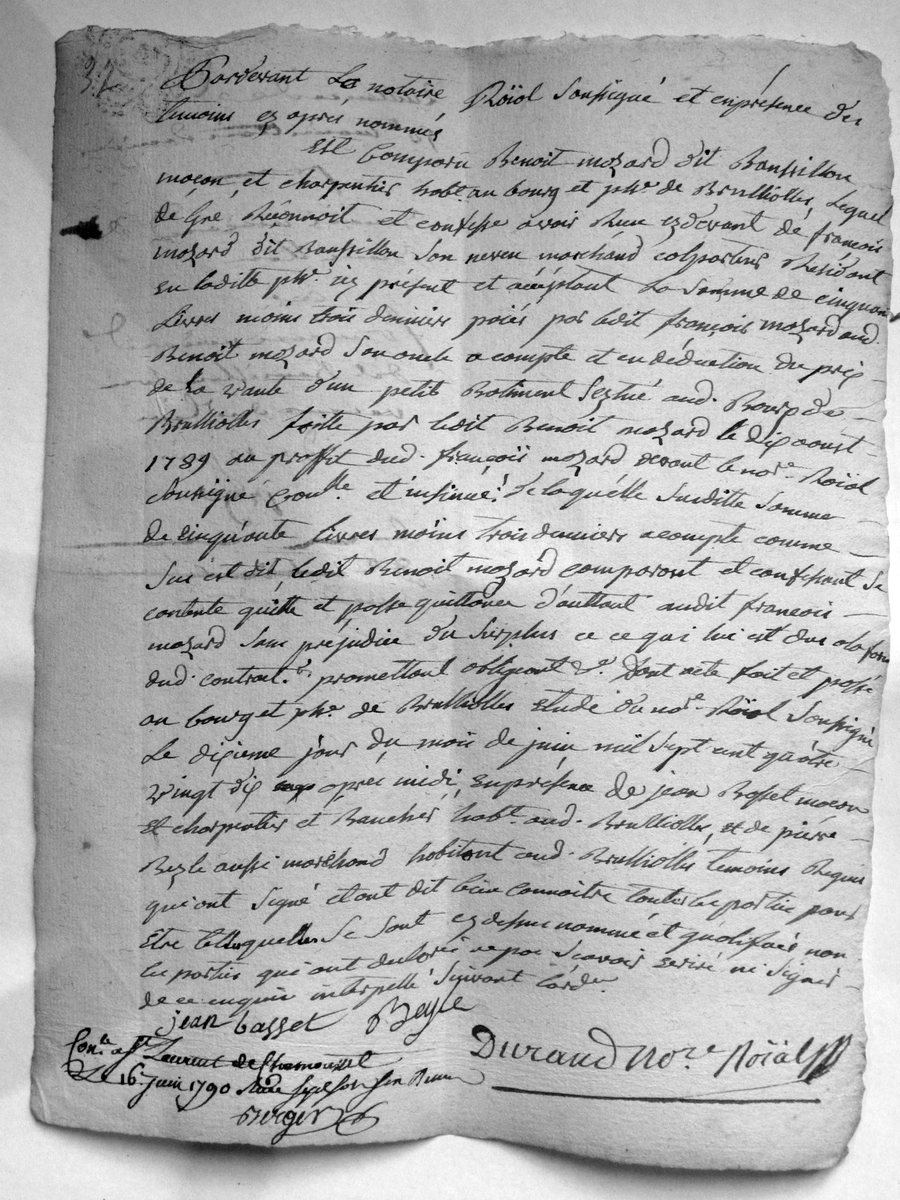 32
Pardevant Le notaire Roïal Soussigné et enprésence des
temoins cy aprés nommés
Est Comparu Benoit mozard dit Roussillon
maçon et charpentier habt. au bourg et phe. de Brulliolles, Lequel
de Gré Réconnoit et confesse avoir Recu cydevant de françois
mozard dit Roussillon Son neveu marchand colporteur Residant
en laditte phe. icy présent et acceptant La Somme de cinquante
Livres moins trois denniers paiés par ledit françois mozard aud.
Benoit mozard Son oncle a compte et en déduction du prix
de La vante d'un petit Batiment Scitué aud. Bourg de
Brulliolles faitte par ledit Benoit mozard le dix aoust
1789 au proffit dud. françois mozard devant le nore. Roïal
Soussigné Croullé et insinué; de laquelle Susditte Somme
de cinquante livres moins trois denniers acompte comme
Sus est dit, ledit Benoit mozard comparant et confessant Se
contente quitte et passe quittance d'auttant audit francois
mozard Sans préjudice du Surplus ce qui lui est du a la forme
dud. contrat. promettant obligeant &a. Dont acte fait et passé
au bourg et phe. de Brulliolles Etude du nore. Roïal Soussigné
Le dixieme jour du mois de juin mil Sept cent quatre
vingt dix apres midi, en présence de jean Basset maçon
et charpentier et habt. aud. Brulliolles, et de pierre
Beyle aussi marchand habitant aud. Brulliolles temoins Requis
qui ont Signé et ont dit bien connoitre touttes les parties pour
Etre telles quelles Se Sont cy dessus nommé et qualifiées non
les parties qui ont declaré ne pas Scavoir ecrire ni Signer
de ce enquis interpellé Suivant l'orde.
jean basset Beyle
Durand Nore. Roïal
Conlé. a St. Laurent de Chamousset
Le 16. juin 1790
Berger